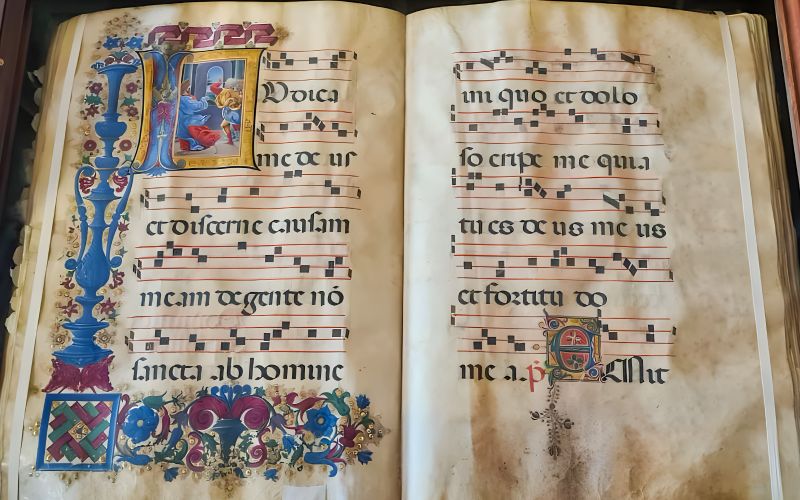 IUdica
me de us
et discerne causam
meam de gente nō
sancta ab homine
ini quo et dolo
so eripe me quia
tu es de us me us
et fortitu do
me a. p̄ EMit